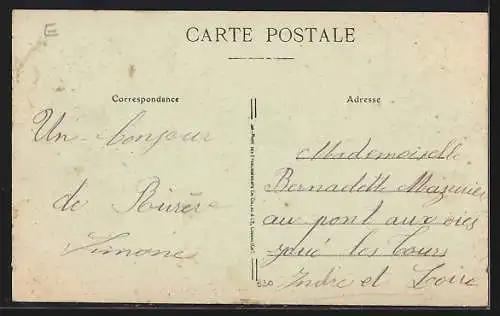 E
CARTE POSTALE
Correspondance
Adresse
Un bonjour
de
Simone
Mademoiselle
Bernadette Mazurier
au pont aux oies
joué les tours
Indre et Loire